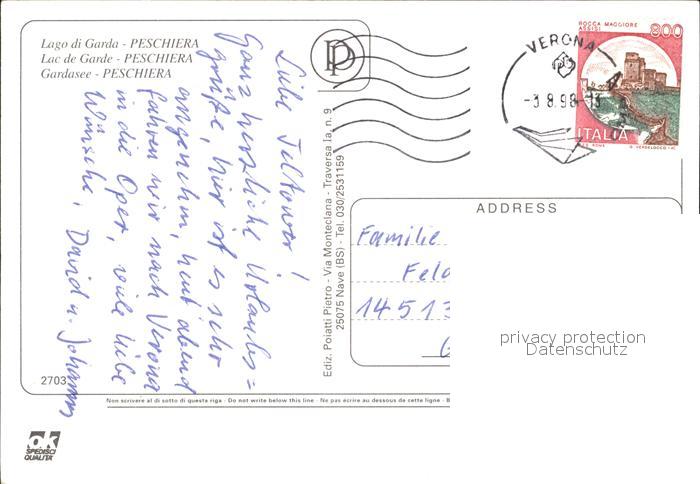 Lago di Garda - PESCHIERA
Lac de Garde - PESCHIERA
Gardasee - PESCHIERA
Liebe Teltower!
Ganz herzliche Urlaubs=
grüße, hier ist es sehr
angenehm, heut abend
fahren wir nach Verona
in die Oper, viele liebe
Wünsche, David u. Johannes
27037
Ediz. Poiatti Pietro - Via Monteclana - Traversa 1a, n. 9
25075 Nave (BS) - Tel. 030/2531159
P
VERONA
-3.8.98-13
ROCCA MAGGIORE
ASSISI
800
ITALIA
ADDRESS
Familie
Feld
14513
privacy protection
Datenschutz
Non scrivere al di sotto di questa riga - Do not write below this line - Ne pas écrire au dessous de cette ligne - B
ok
SPEDISCI
QUALITA'